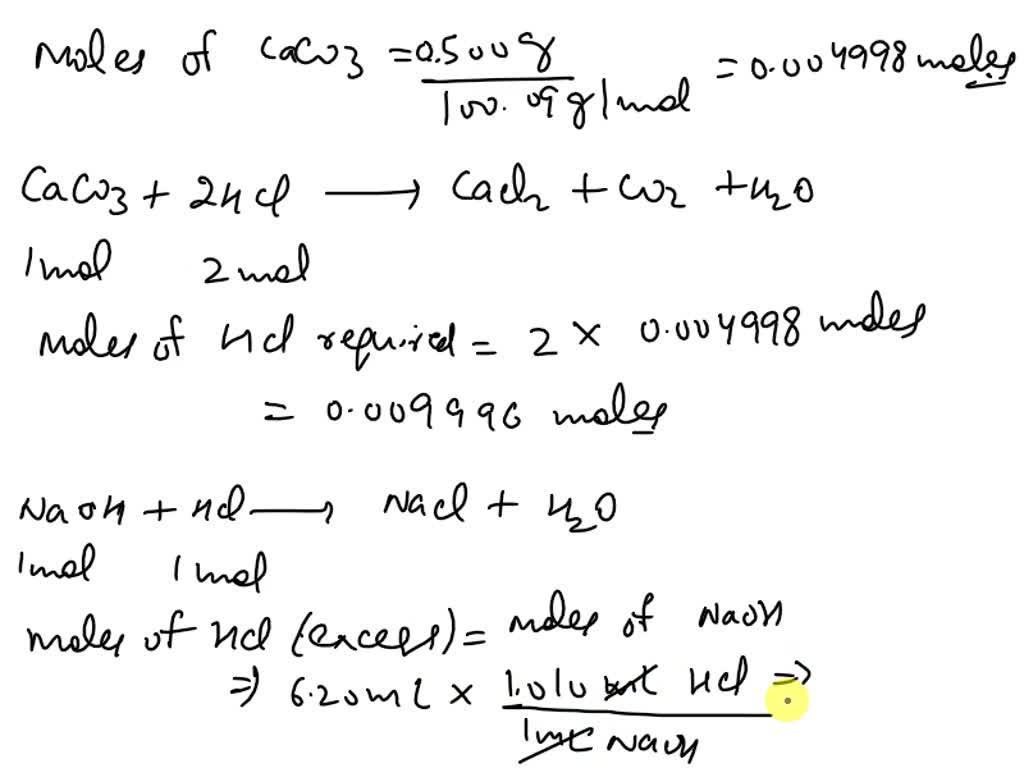 Moles of CaCO3 = 0.500g / 100.09g/mol = 0.004998 moles
CaCO3 + 2HCl → CaCl2 + CO2 + H2O
1mol 2mol
Moles of HCl required = 2 × 0.004998 moles
= 0.009996 moles
NaOH + HCl → NaCl + H2O
1mol 1mol
moles of HCl (excess) = moles of NaOH
⇒ 6.20mL × 1.010 mL HCl / 1mL NaOH ⇒